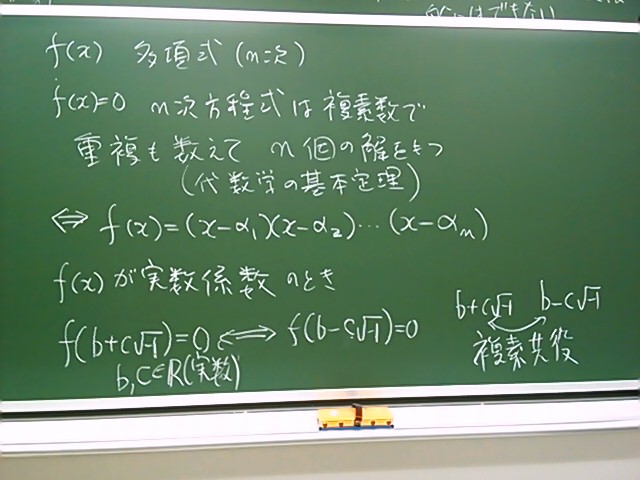 はできない
f(x) 多項式 (n次)
f(x)=0 n次方程式は複素数で
重複も数えて n個の解をもつ
(代数学の基本定理)
⇔ f(x)=(x-α₁)(x-α₂)…(x-αₙ)
f(x)が実数係数のとき
f(b+c√-1)=0 ⇔ f(b-c√-1)=0
b,c∈R(実数)
b+c√-1 b-c√-1
複素共役